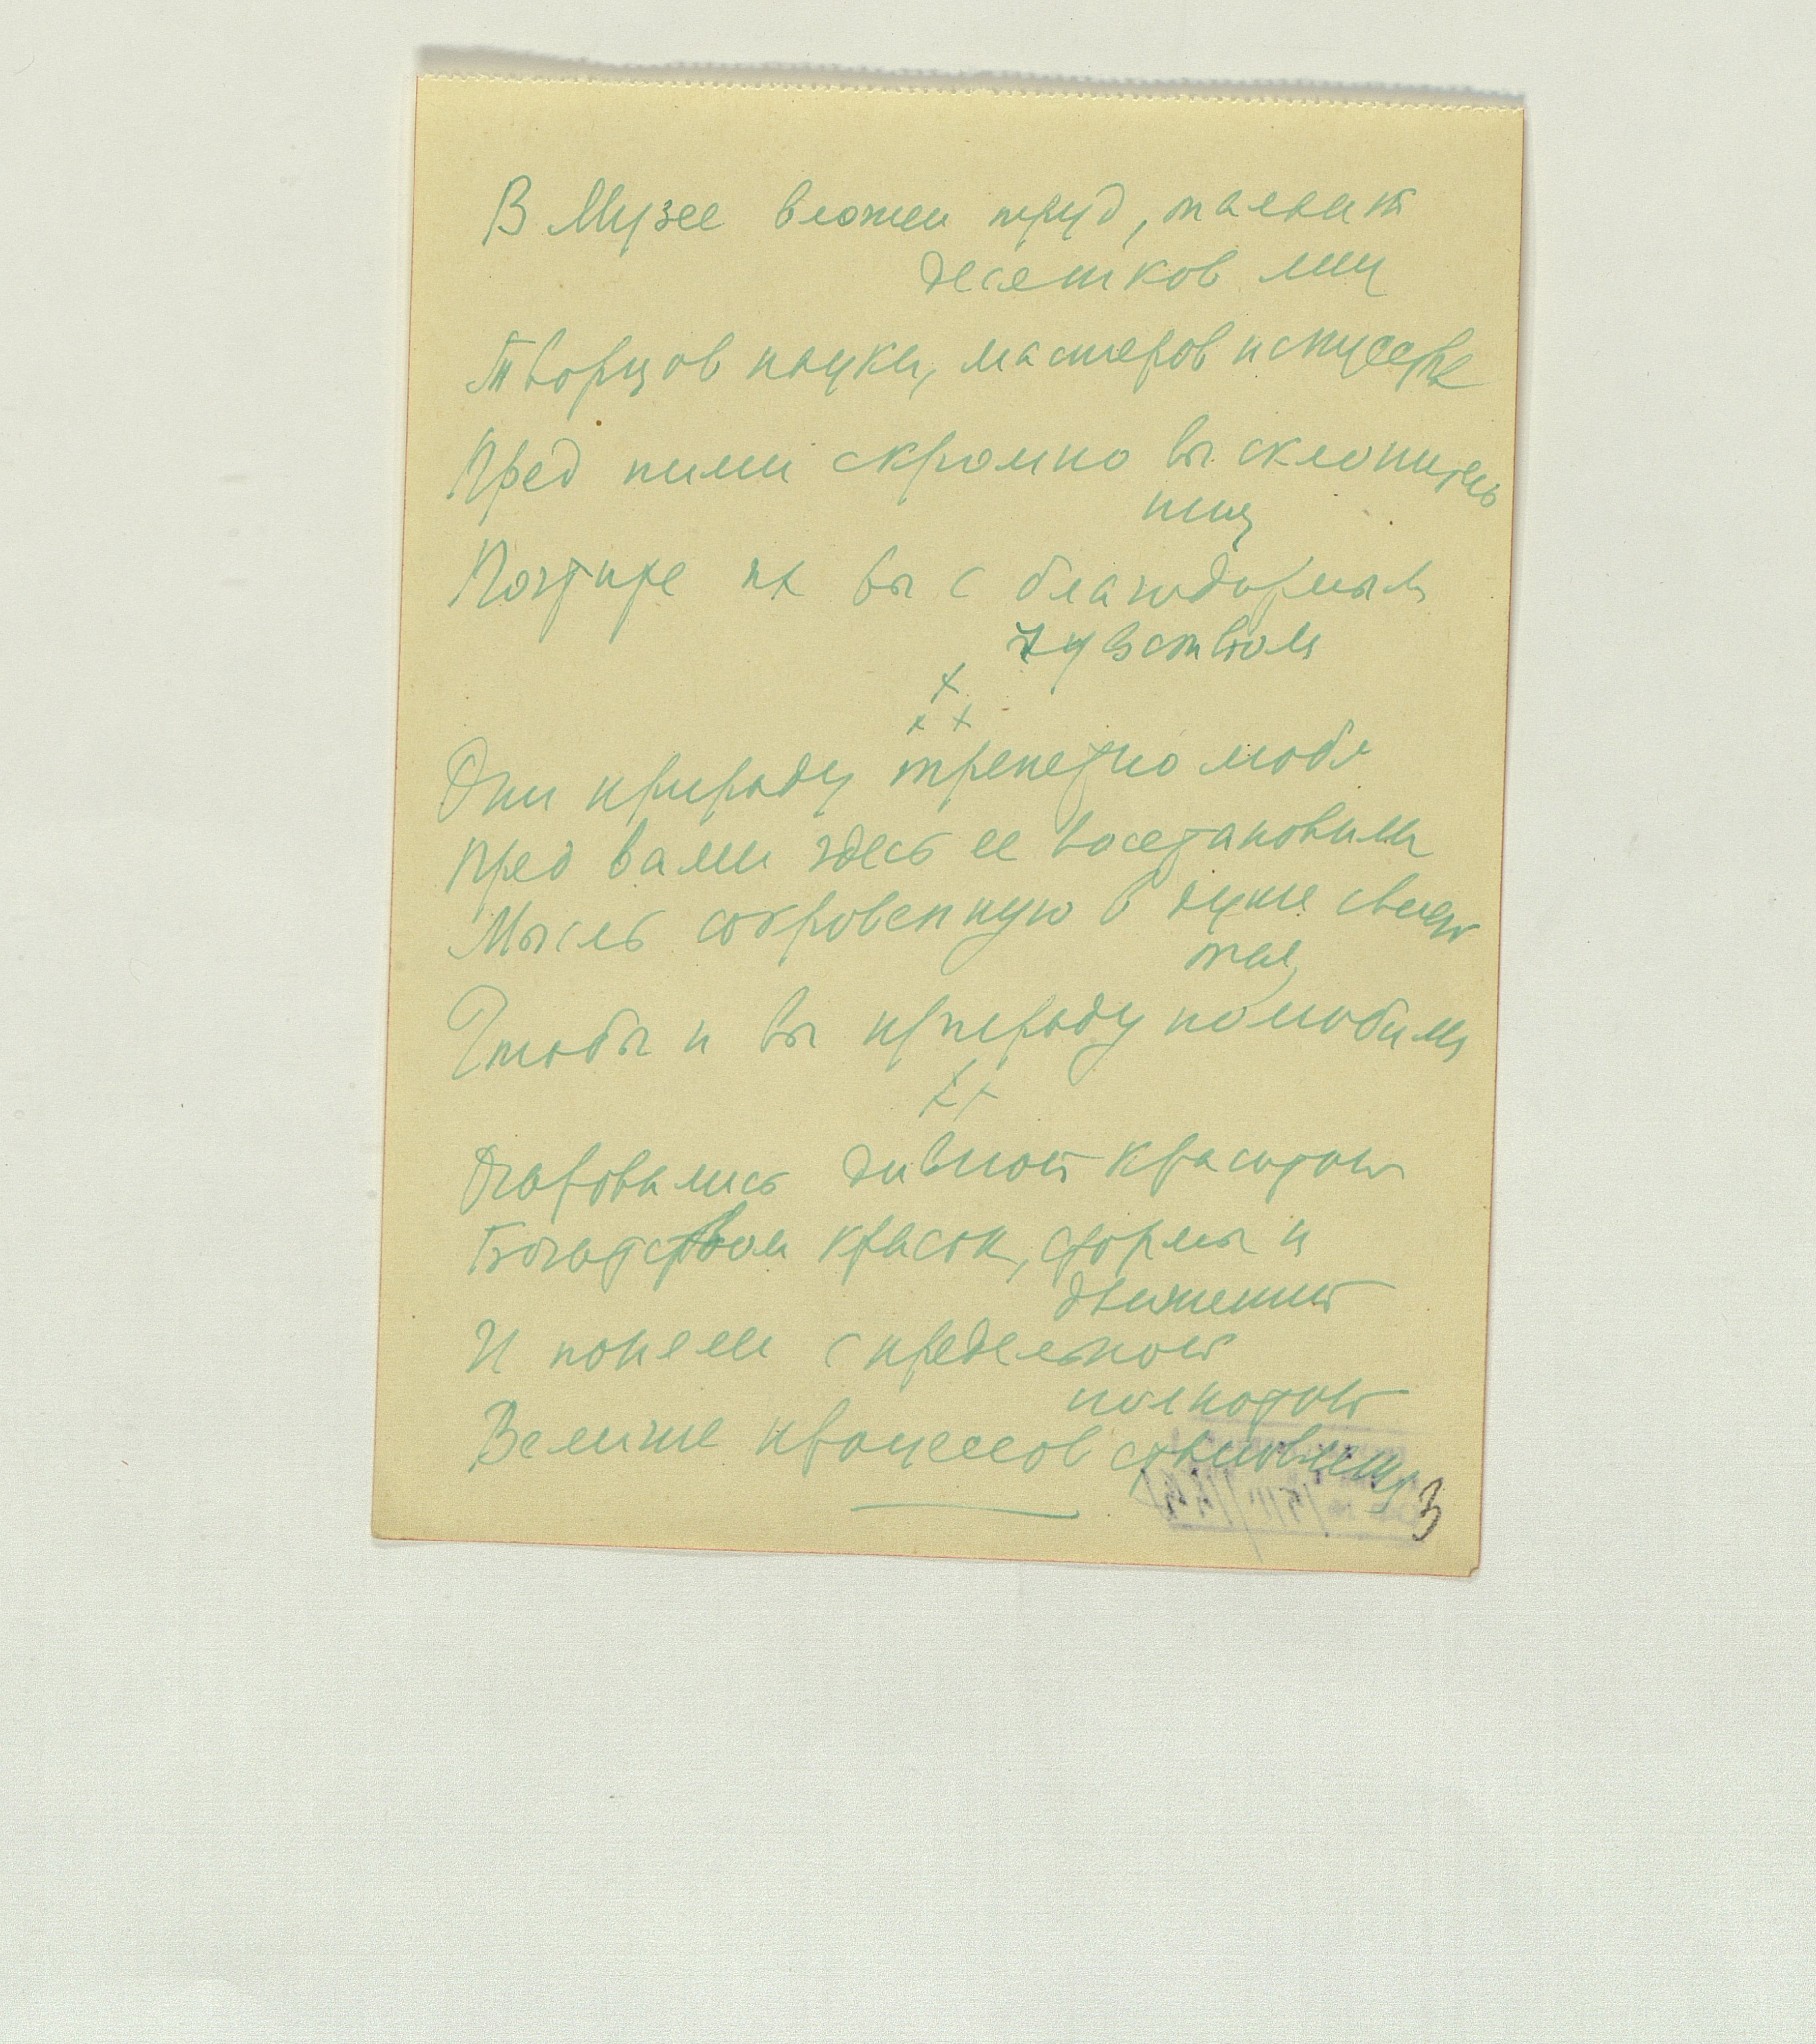 В Музее вложен труд, талант
десятков лиц
Творцов науки, мастеров искусства
Пред ними скромно вы склонитесь
ниц
Почтите их вы с благодарным
чувством
х
х х
Они природу трепетно любя
Пред вами здесь ее восстановили
Мысль сокровенную в душе своей
тая,
Чтобы и вы природу полюбили
х х
Очаровались дивной красотой
Богатством красок, формы и
движений
И поняли с предельной
полнотой
Величие процессов становленья
3